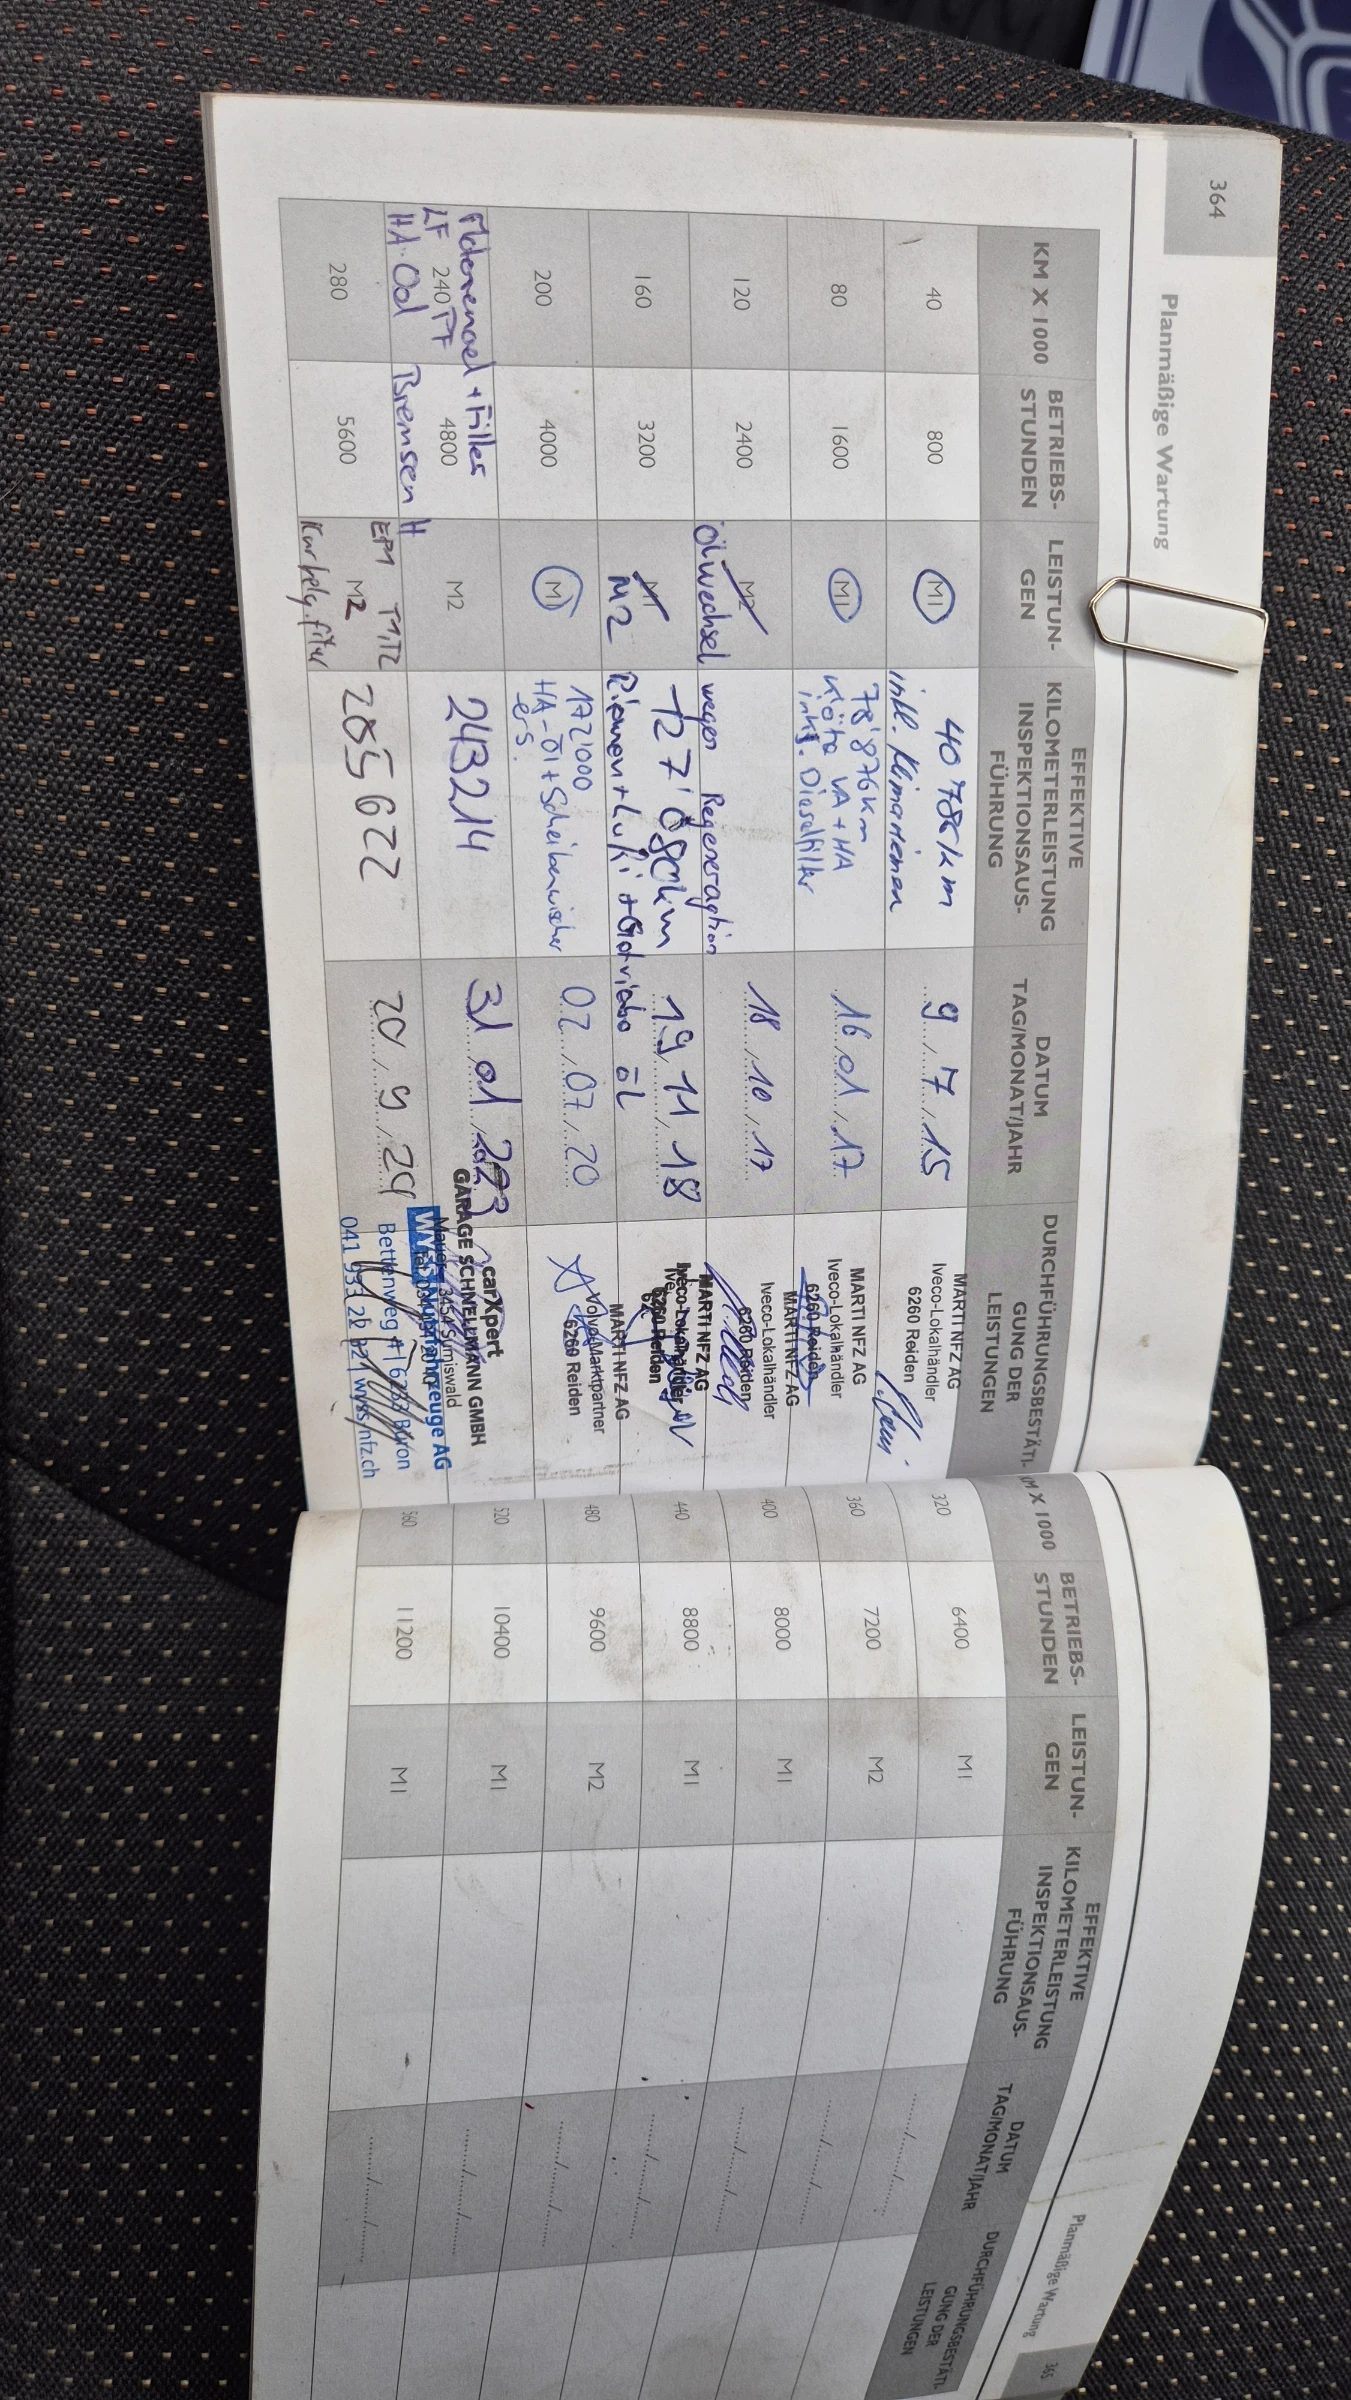 364
Planmäßige Wartung
KM X 1000
BETRIEBS-
STUNDEN
LEISTUN-
GEN
EFFEKTIVE
KILOMETERLEISTUNG
INSPEKTIONSAUS-
FÜHRUNG
DATUM
TAG/MONAT/JAHR
DURCHFÜHRUNGSBESTÄTI-
GUNG DER
LEISTUNGEN
40
800
M1
40'786 km
inkl. Klimariemen
9 / 7 / 15
MARTI NFZ AG
Iveco-Lokalhändler
6260 Reiden
80
1600
M1
78'876 km
Klötze VA + HA
inkl. Dieselfilter
16 / 01 / 17
MARTI NFZ AG
Iveco-Lokalhändler
6260 Reiden
120
2400
M2
Ölwechsel wegen Regeneration
18 / 10 / 17
MARTI NFZ AG
Iveco-Lokalhändler
6260 Reiden
160
3200
M1
M2
127'080km
Riemen + Lufi + Getriebe öL
19 / 11 / 18
MARTI NFZ AG
Iveco-Lokalhändler
6260 Reiden
200
4000
M1
172'000
HA-Öl + Scheibenwischer
ers.
02 / 07 / 20
MARTI NFZ AG
Volvo Marktpartner
6260 Reiden
Motorenoel + Filter
LF 240 PF
4800
M2
HA. Oel Bremsen H
243214
31 01 223
carXpert
GARAGE SCHNELLMANN GMBH
3454 Sumiswald
280
5600
M2
EPM T1,T2
205622
20 / 9 / 24
WYSS Nutzfahrzeuge AG
Bettenweg 41 6233 Büron
041 933 22 27 wyss-nfz.ch
Planmäßige Wartung
365
KM X 1000
BETRIEBS-
STUNDEN
LEISTUN-
GEN
EFFEKTIVE
KILOMETERLEISTUNG
INSPEKTIONSAUS-
FÜHRUNG
DATUM
TAG/MONAT/JAHR
DURCHFÜHRUNGSBESTÄTI-
GUNG DER
LEISTUNGEN
320 6400 M1
360 7200 M2
400 8000 M1
440 8800 M1
480 9600 M2
520 10400 M1
560 11200 M1